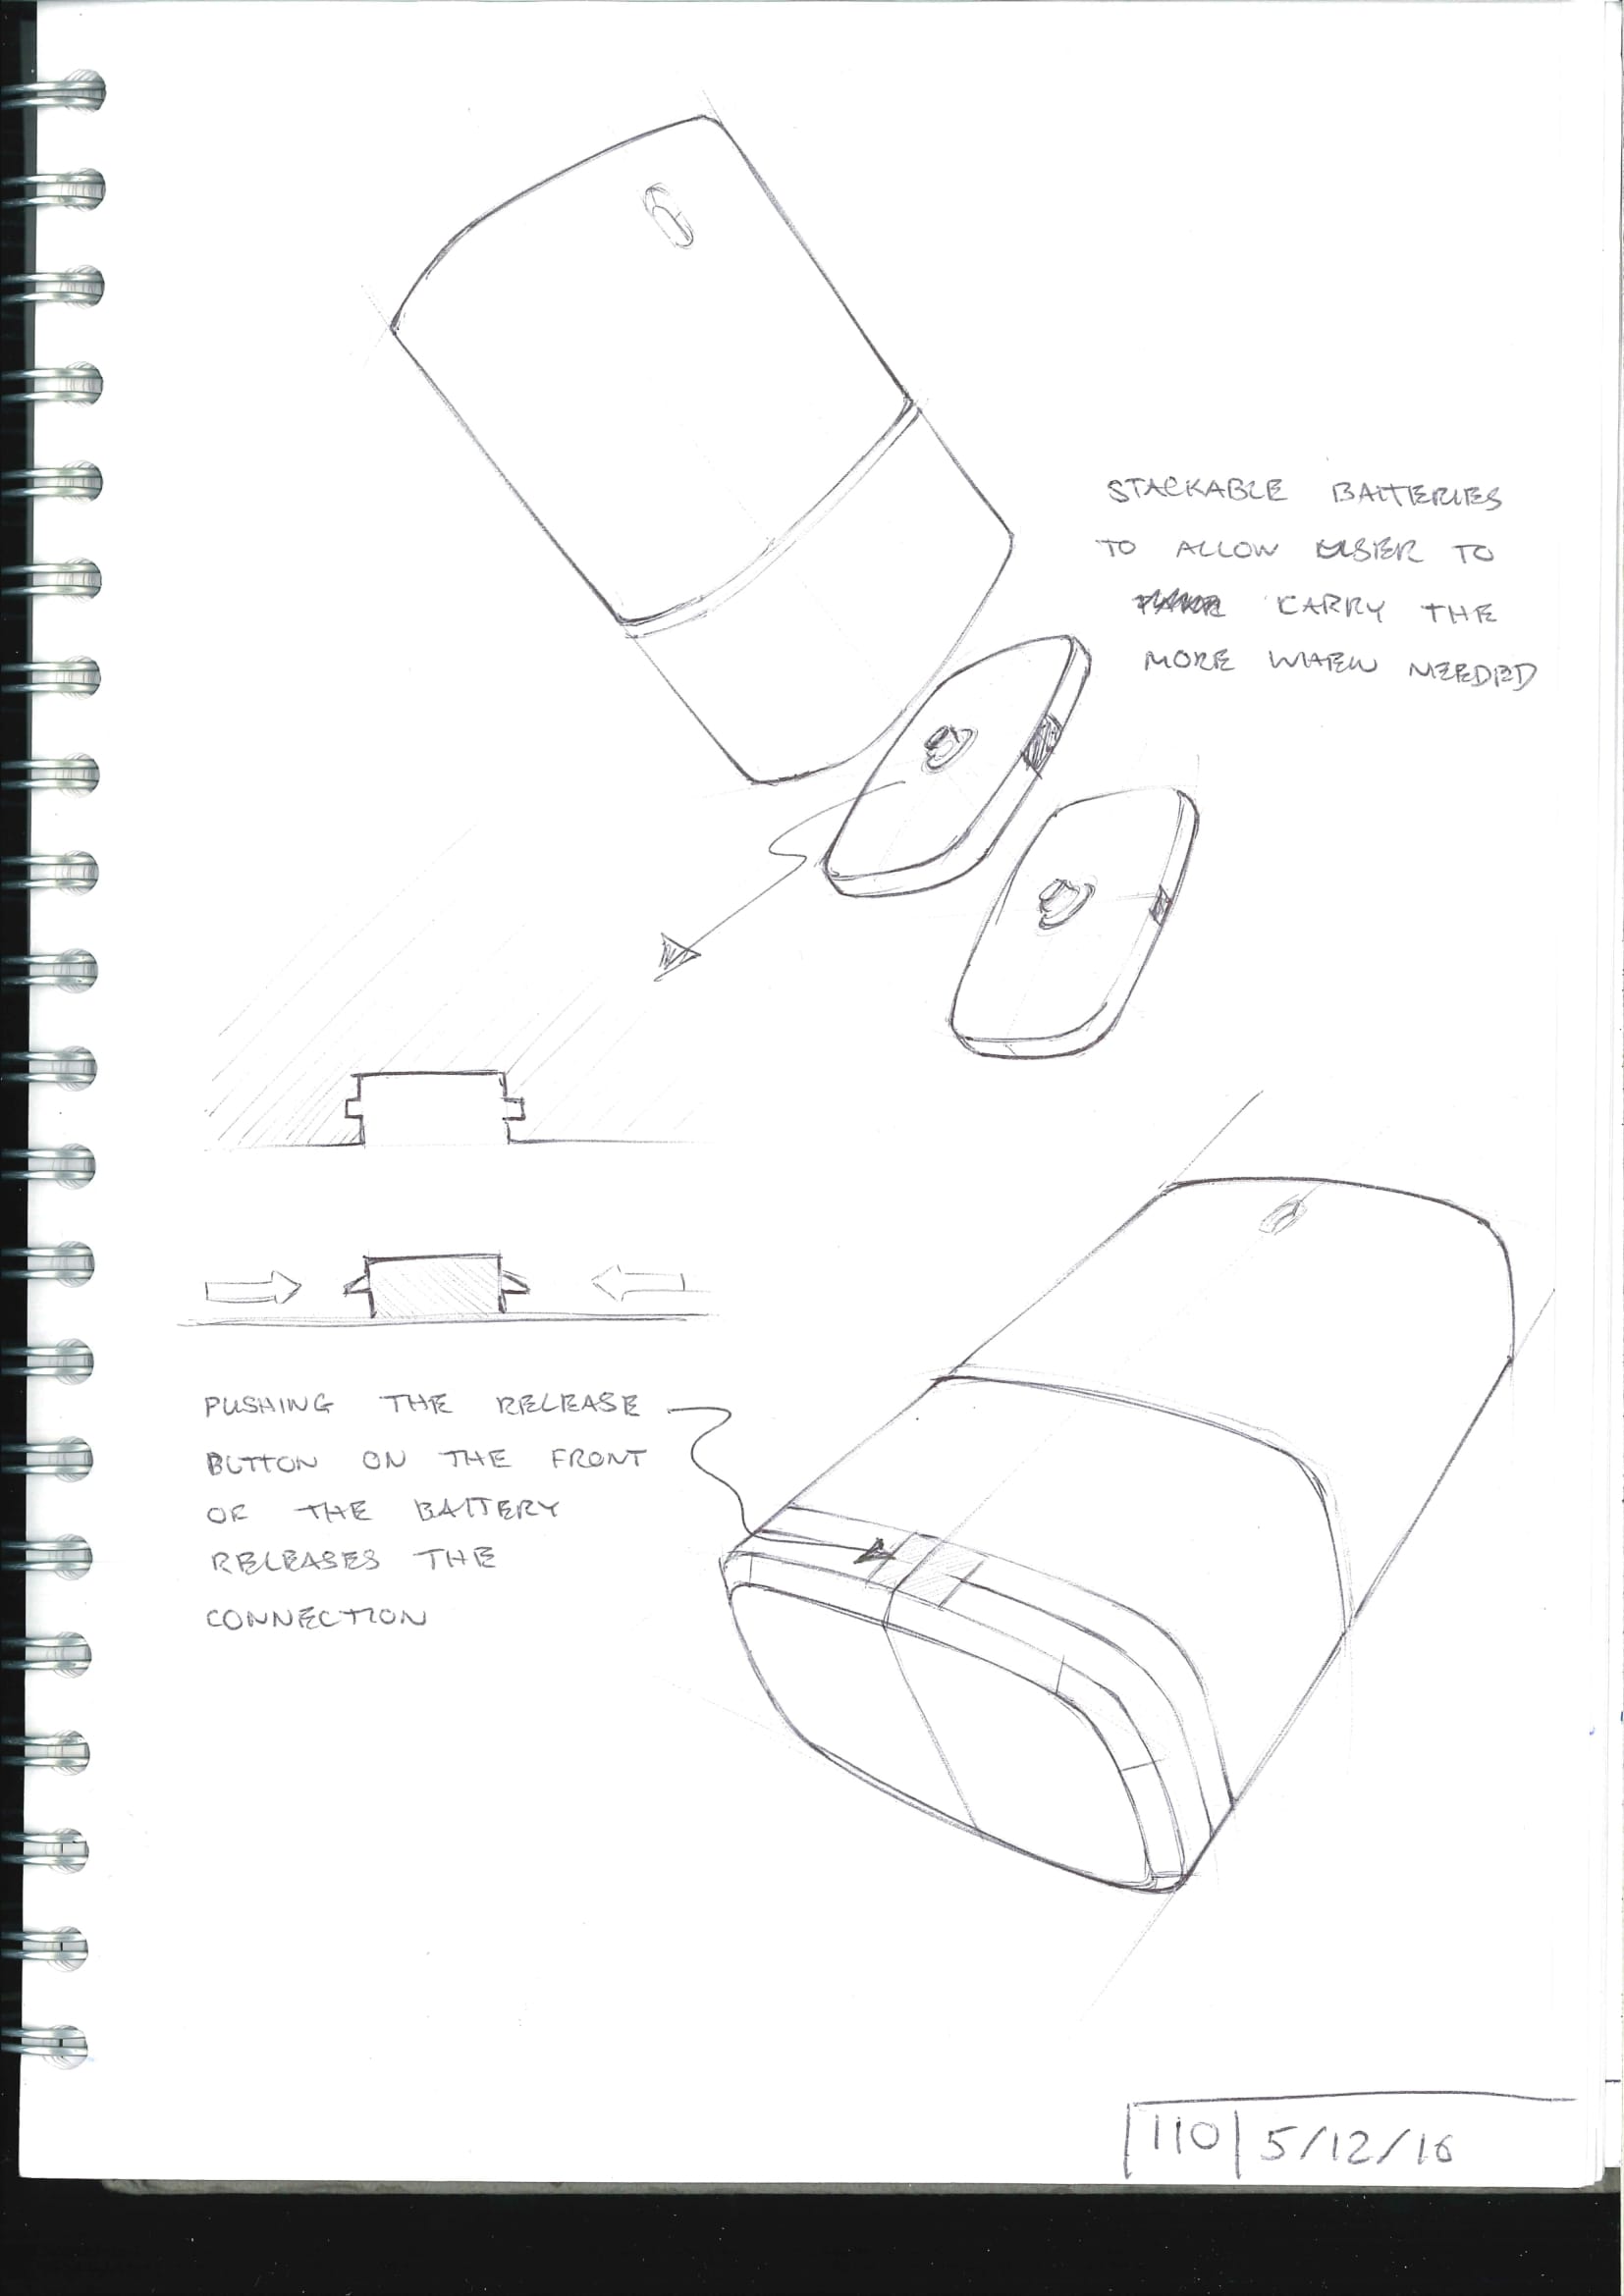 STACKABLE BATTERIES
TO ALLOW USER TO
CARRY THE
MORE WHEN NEEDED
PUSHING THE RELEASE
BUTTON ON THE FRONT
OF THE BATTERY
RELEASES THE
CONNECTION
110 5/12/16